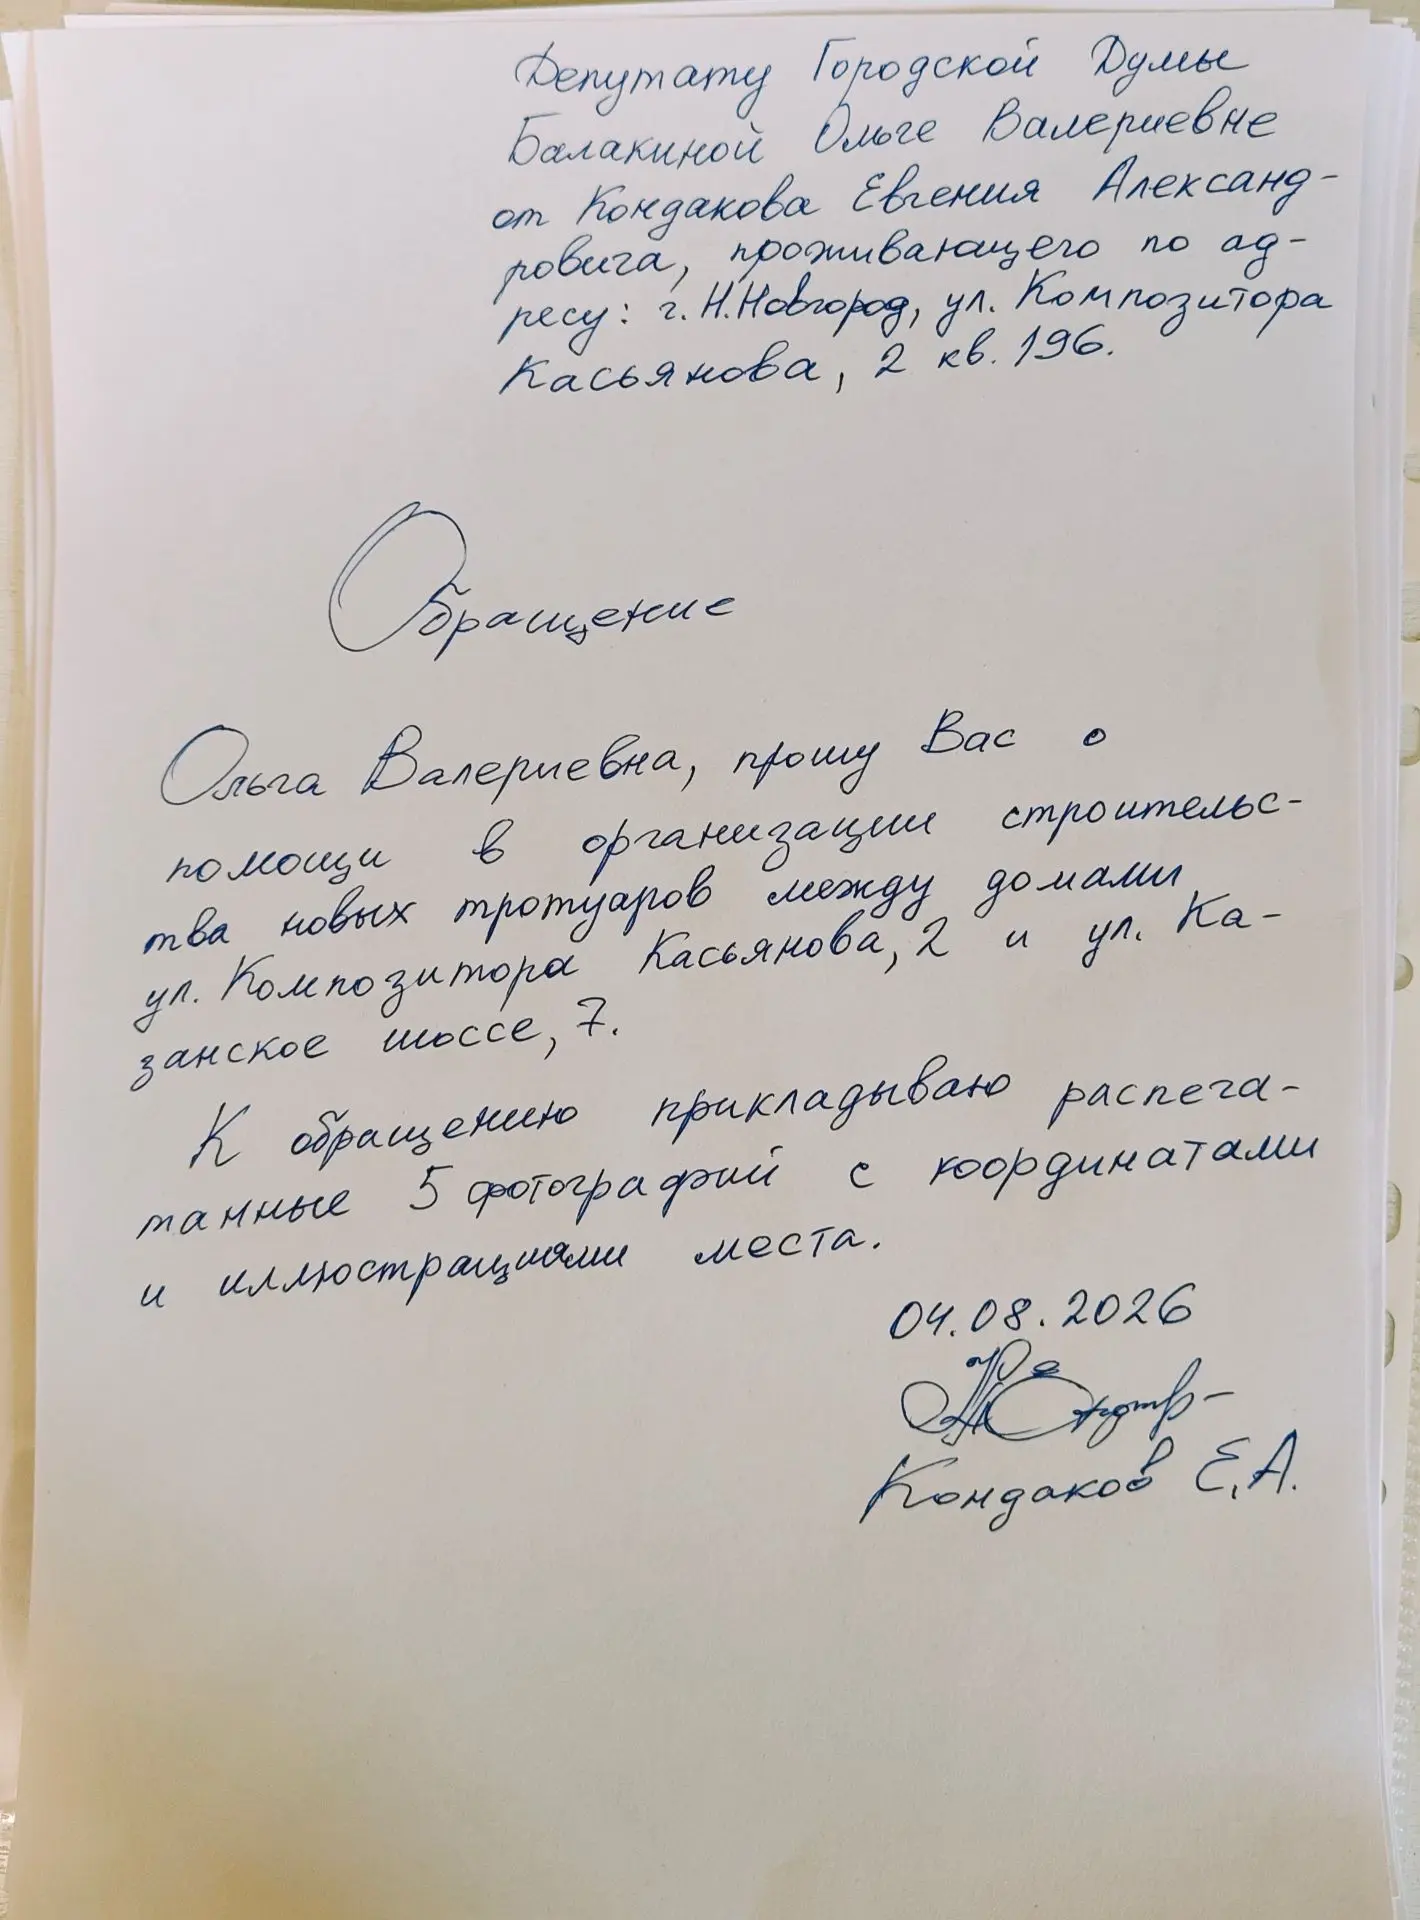 Депутату Городской Думы
Балакиной Ольге Валериевне
от Кондакова Евгения Александ-
ровича, проживающего по ад-
ресу: г. Н.Новгород, ул. Композитора
Касьянова, 2 кв. 196.
Обращение
Ольга Валериевна, прошу Вас о
помощи в организации строительс-
тва новых тротуаров между домами
ул. Композитора Касьянова, 2 и ул. Ка-
занское шоссе, 7.
К обращению прикладываю распеча-
танные 5 фотографий с координатами
и иллюстрациями места.
04.08.2026
Кондаков Е.А.